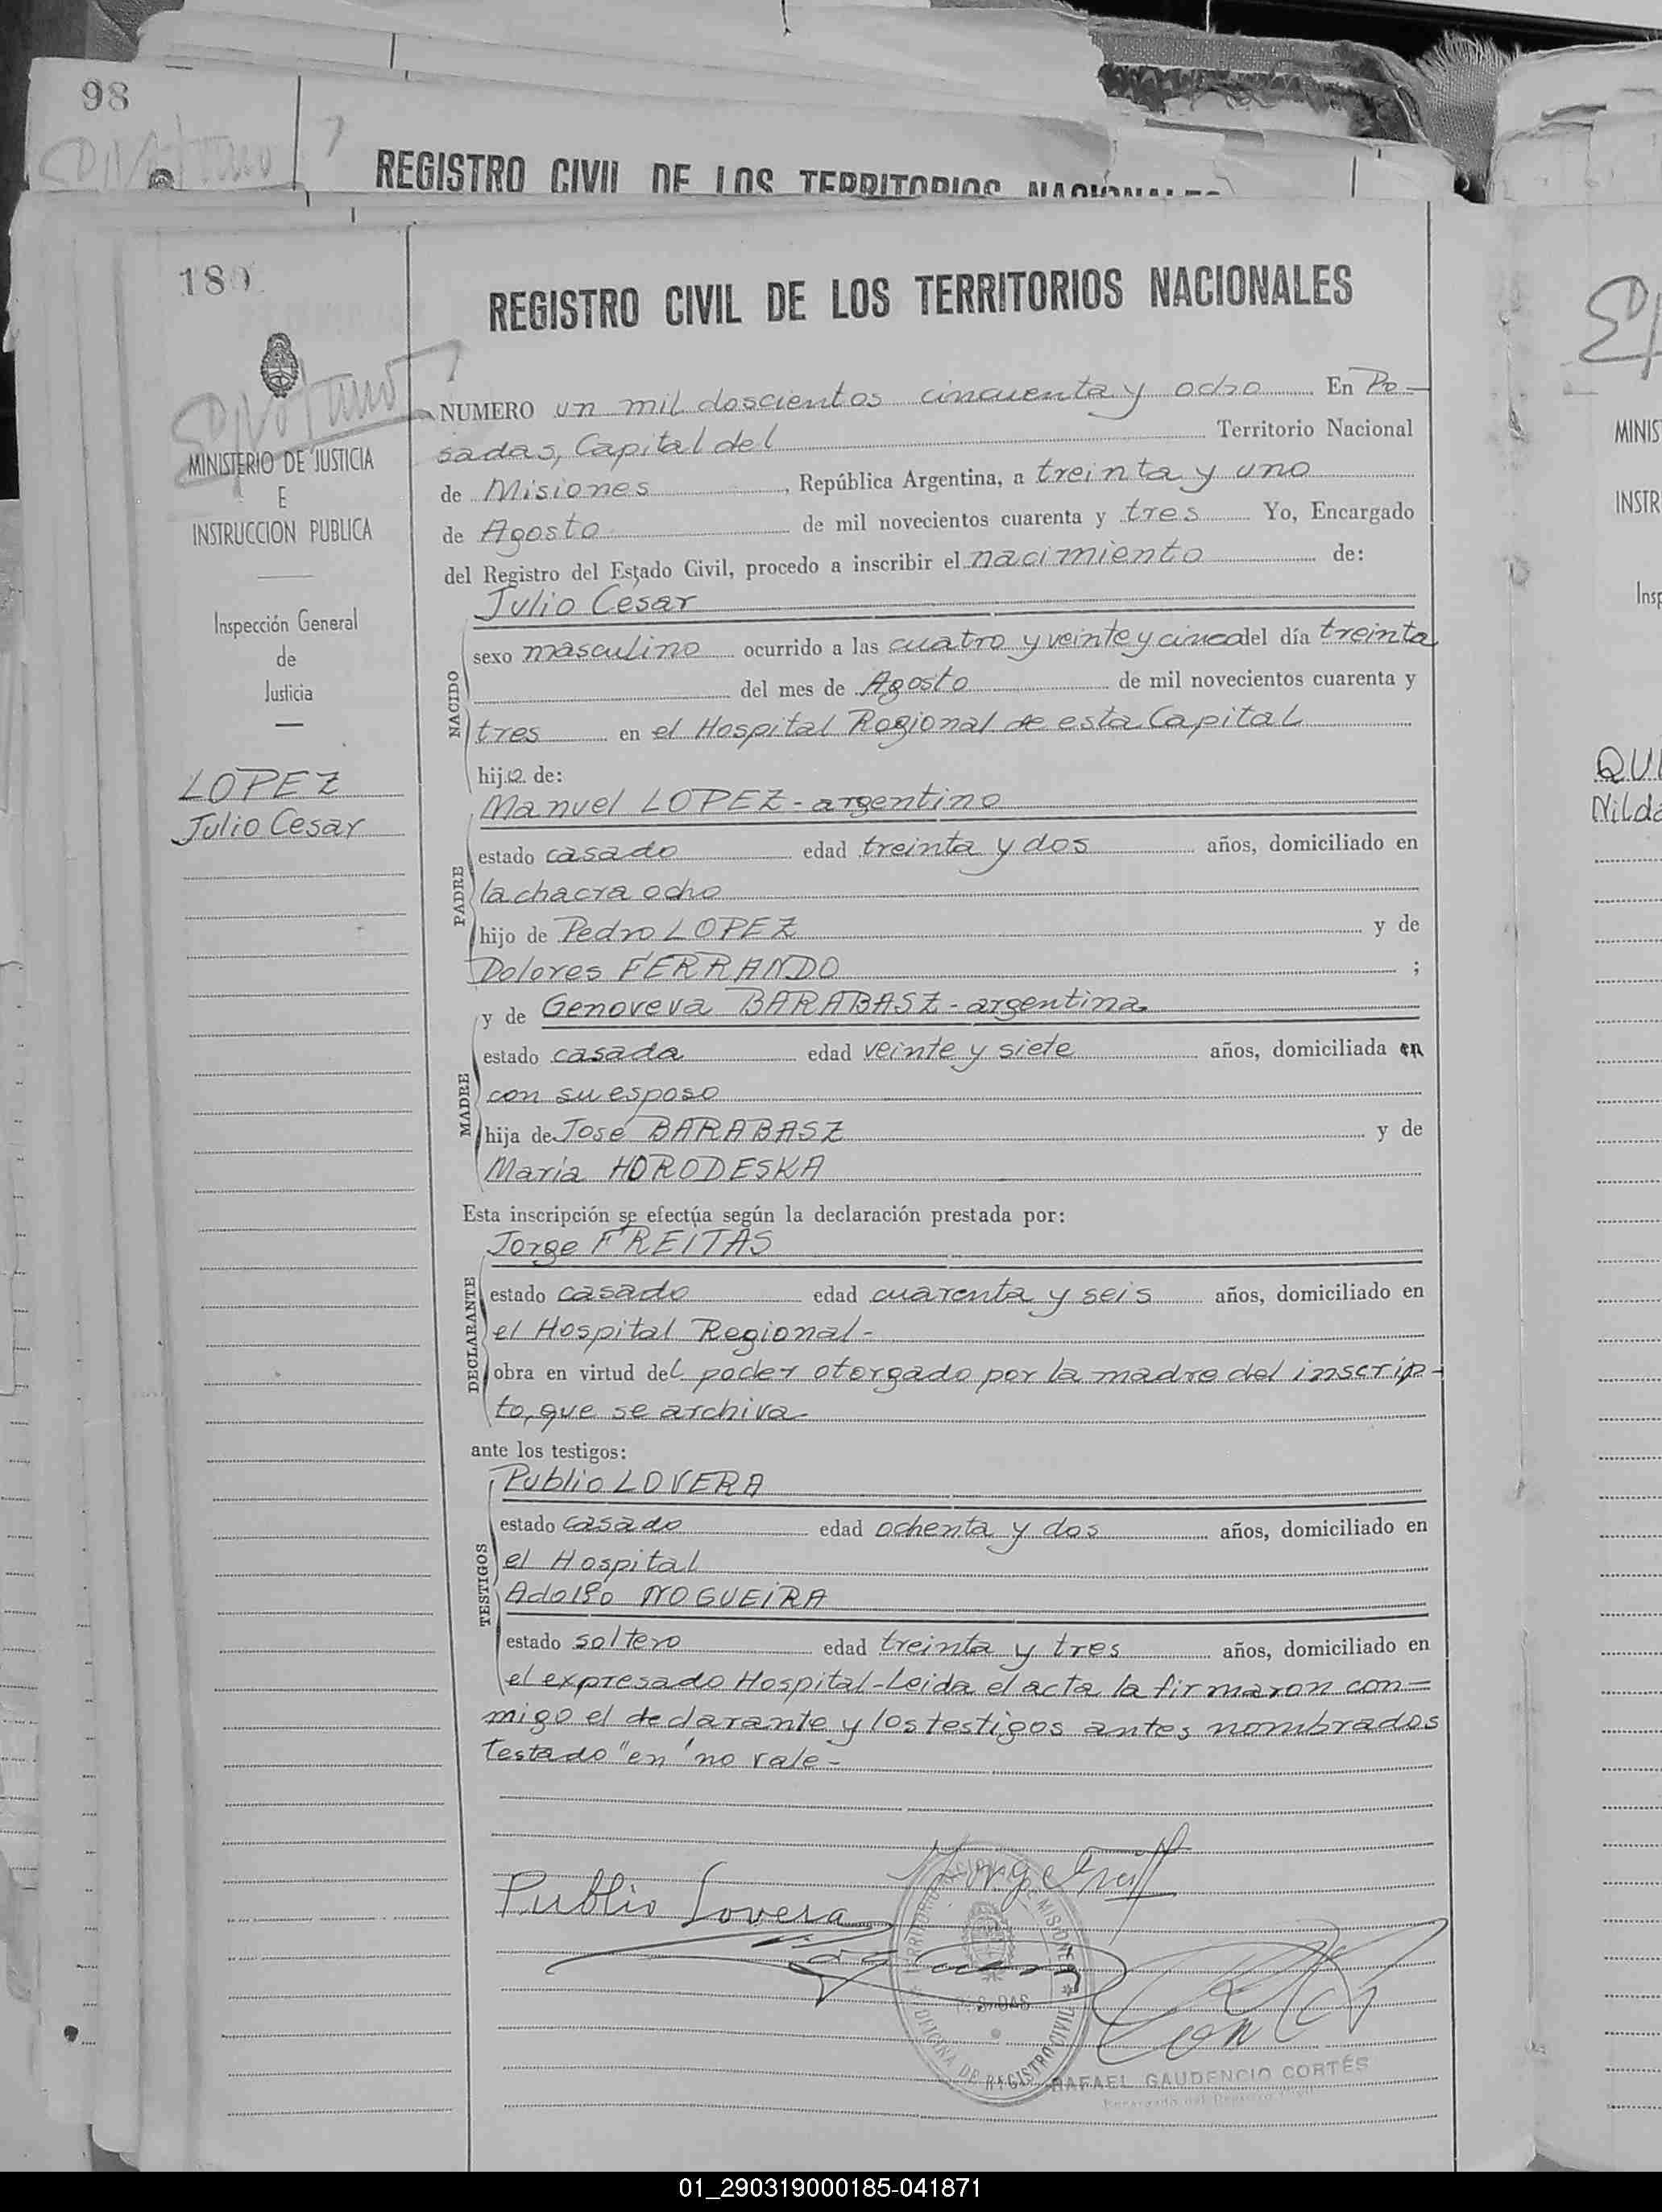 98
REGISTRO CIVIL DE LOS TERRITORIOS NACIONALES
180
REGISTRO CIVIL DE LOS TERRITORIOS NACIONALES
MINISTERIO DE JUSTICIA
E
INSTRUCCION PUBLICA
Inspección General
de
Justicia
LOPEZ
Julio Cesar
NUMERO un mil doscientos cincuenta y ocho En Po-
sadas, Capital del Territorio Nacional
de Misiones, República Argentina, a treinta y uno
de Agosto de mil novecientos cuarenta y tres Yo, Encargado
del Registro del Estado Civil, procedo a inscribir el nacimiento de:
Julio Cesar
NACIDO
sexo masculino ocurrido a las cuatro y veinte y cinco del día treinta
del mes de Agosto de mil novecientos cuarenta y
tres en el Hospital Regional de esta Capital
hijo de:
Manuel LOPEZ - argentino
PADRE
estado casado edad treinta y dos años, domiciliado en
la chacra ocho
hijo de Pedro LOPEZ y de
Dolores FERRANDO ;
y de Genoveva BARABASZ - argentina
MADRE
estado casada edad veinte y siete años, domiciliada en
con su esposo
hija de José BARABASZ y de
María HORODESKA
Esta inscripción se efectúa según la declaración prestada por:
Jorge FREITAS
DECLARANTE
estado casado edad cuarenta y seis años, domiciliado en
el Hospital Regional-
obra en virtud del poder otorgado por la madre del inscrip-
to, que se archiva
ante los testigos:
Publio LOVERA
TESTIGOS
estado casado edad ochenta y dos años, domiciliado en
el Hospital
Adolfo NOGUEIRA
estado soltero edad treinta y tres años, domiciliado en
el expresado Hospital-Leida el acta la firmaron con=
migo el declarante y los testigos antes nombrados
Testado "en" no vale-
Publio Lovera
POSADAS
OFICINA DE REGISTRO CIVIL
RAFAEL GAUDENCIO CORTÉS
Encargado del Registro Civil
MINIS
INSTR
Insp
QUI
Nilda
01_290319000185-041871